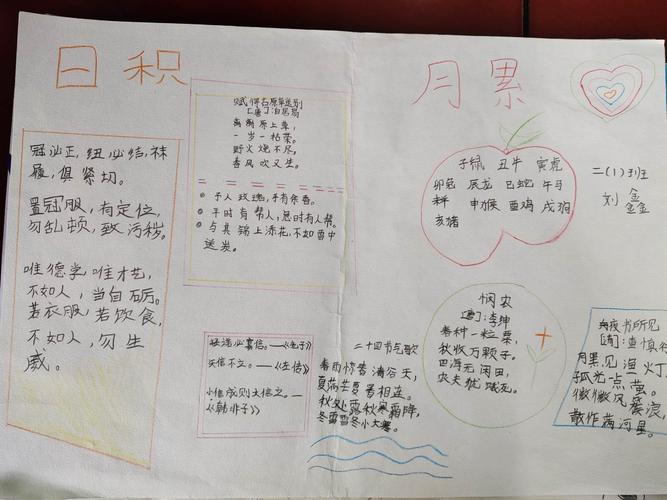 日 积 月 累
冠必正,纽必结,袜
履,俱紧切。
置冠服,有定位,
勿乱顿,致污秽。
唯德学,唯才艺,
不如人,当自砺。
若衣服,若饮食,
不如人,勿生
戚。
赋得古原草送别
[唐]白居易
离离原上草,
一岁一枯荣。
野火烧不尽,
春风吹又生。
予人玫瑰,手有余香。
平时有帮人,急时有人帮。
与其锦上添花,不如雪中
送炭。
轻诺必寡信。—《老子》
失信不立。—《左传》
小信成则大信立。—
《韩非子》
二十四节气歌
春雨惊春清谷天,
夏满芒夏暑相连。
秋处露秋寒霜降,
冬雪雪冬小大寒。
子鼠 丑牛 寅虎
卯兔 辰龙 巳蛇 午马
未羊 申猴 酉鸡 戌狗
亥猪
二(1)班
刘鑫鑫
悯农
[唐]李绅
春种一粒粟,
秋收万颗子。
四海无闲田,
农夫犹饿死。
舟夜书所见
[清]查慎行
月黑见渔灯,
孤光一点萤。
微微风簇浪,
散作满河星。